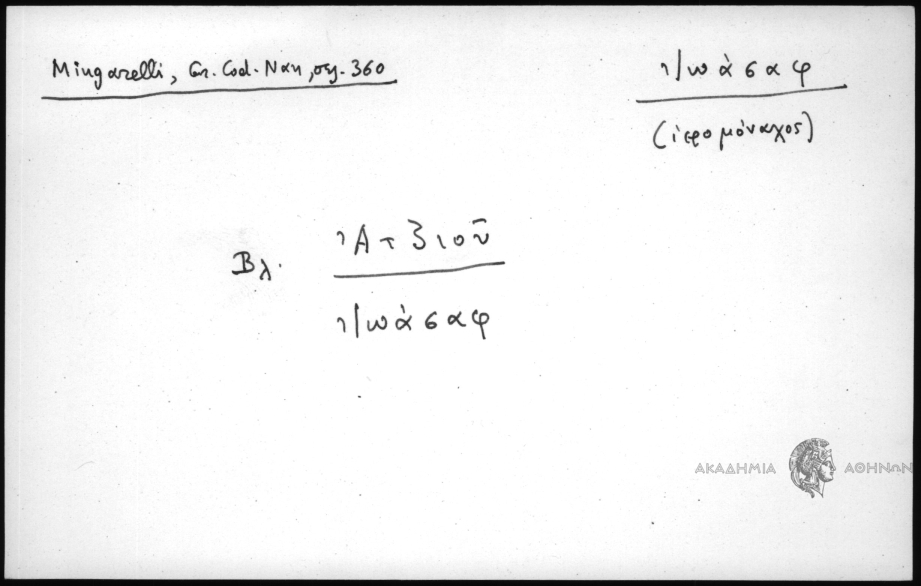 Mingarelli, Gr. Cod. Nan, σελ. 360
Ἰωάσαφ
(ἱερομόναχος)
Βλ.
Ἰωάσαφ
ΑΚΑΔΗΜΙΑ ΑΘΗΝΩΝ